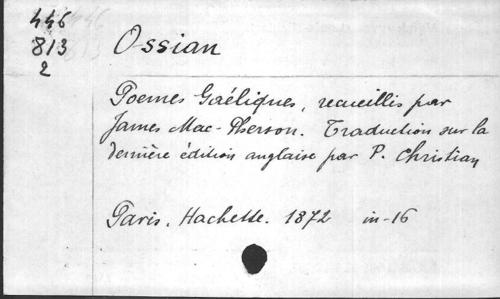 446
813
2
Ossian
Poemes Gaéliques, recueillis par
James Mac-Pherson. Traduction sur la
dernière édition anglaise par P. Christian
Paris. Hachette. 1872 in-16